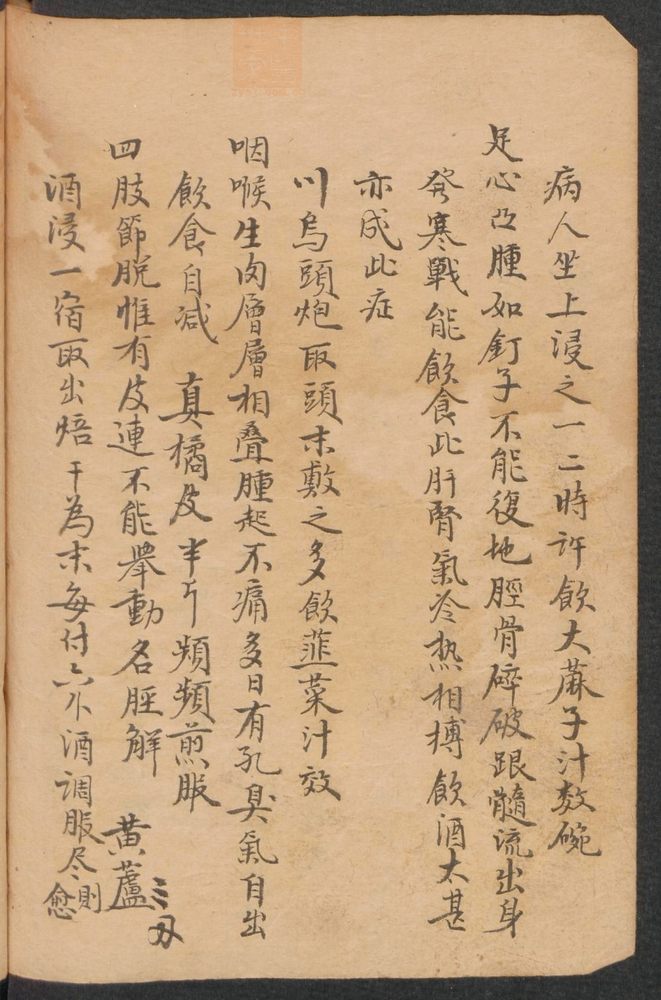 病人坐上浸之一二時許飲大蔴子汁数碗
足心凸腫如釘子不能復地脛骨碎破跟髓流出身
發寒戰能飲食此肝腎氣冷热相搏飲酒太甚
亦成此症
川烏頭炮取頭末敷之多飲韮菜汁效
咽喉生肉層層相叠腫起不痛多日有孔臭氣自出
飲食自减　真橘皮半斤頻頻煎服
四肢節脱惟有皮連不能舉動名脛解　黄蘆三刄
酒浸一宿取出焙干為末每付六小酒調服尽則愈